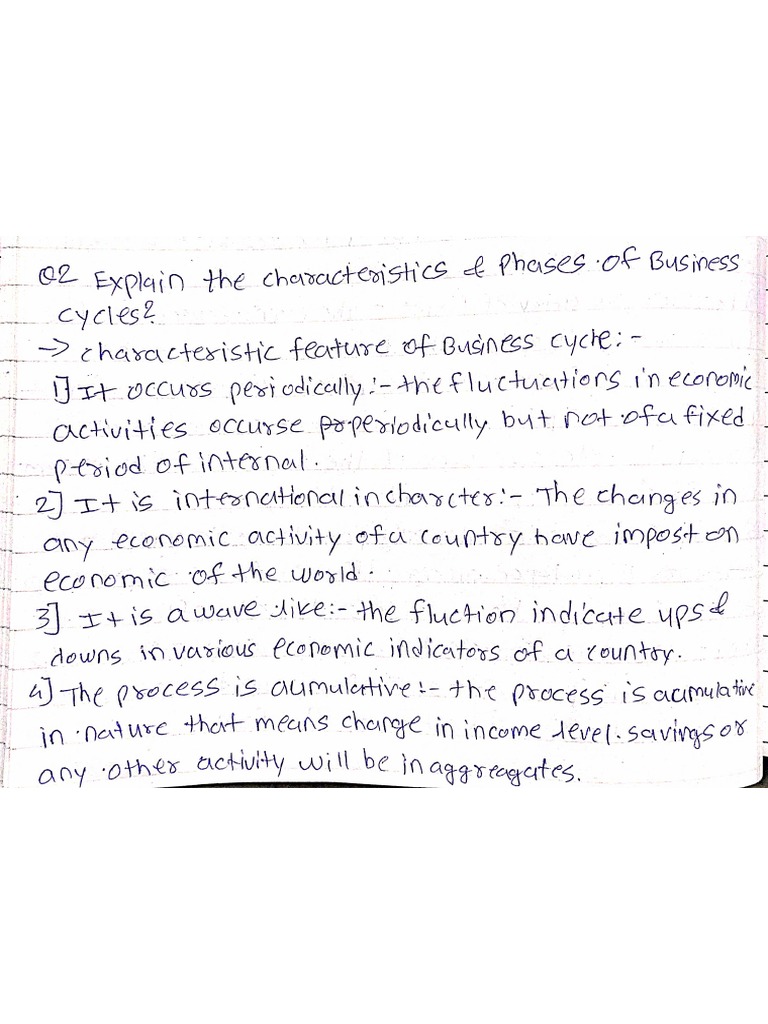 Q2 Explain the characteristics & Phases of Business
cycles?
→ characteristic feature of Business cycle:-
1] It occurs periodically:- the fluctuations in economic
activities occurse periodically but not of a fixed
period of internal.
2] It is international in charcter:- The changes in
any economic activity of a country have impost on
economic of the world.
3] It is a wave like:- the fluction indicate ups &
downs in various economic indicators of a country.
4] The process is aumulative:- the process is acumulative
in nature that means change in income level. savings or
any other activity will be in aggreagates.